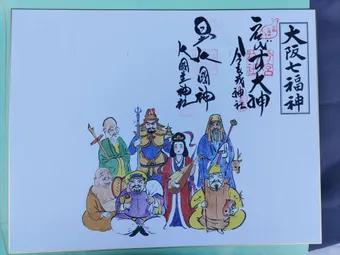 大阪七福神
ゑびす大神
今宮戎神社
日出大國神
大国主神社